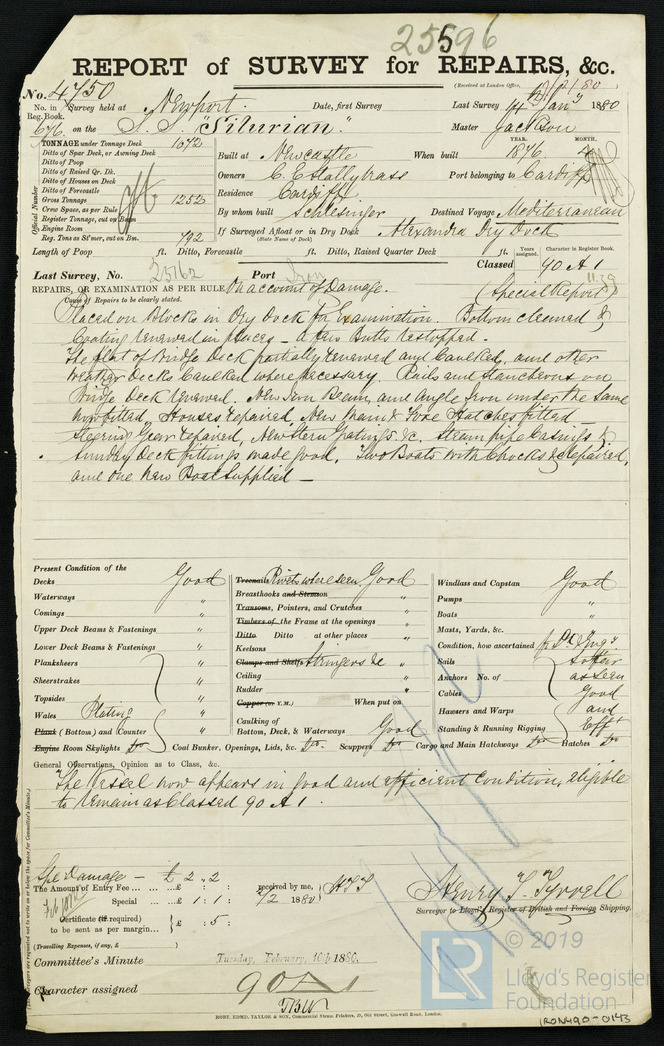 25596
REPORT of SURVEY for REPAIRS, &c.
(Received at London Office,
No. 4750
No. in Reg. Book. Survey held at Newport. Date, first Survey Last Survey 14 Jany 1880
676 on the S. S. "Silurian." Master Jackson
TONNAGE under Tonnage Deck 1072
Ditto of Spar Deck, or Awning Deck
Ditto of Poop
Ditto of Raised Qr. Dk.
Ditto of Houses on Deck
Ditto of Forecastle
Gross Tonnage 1252
Crew Space, as per Rule
Register Tonnage, cut on Beam
Engine Room
Reg. Tons as St'mer, cut on Bm. 792
Official Number
YEAR. MONTH.
Built at Newcastle When built 1876
Owners C. E. Stallybrass Port belonging to Cardiff
Residence Cardiff
By whom built Schlesinger Destined Voyage Mediterranean
If Surveyed Afloat or in Dry Dock Alexandra Dry Dock
(State Name of Dock)
Length of Poop ft. Ditto, Forecastle ft. Ditto, Raised Quarter Deck ft.
Years assigned. Character in Register Book.
Classed 90 A 1
Last Survey, No. 25162 Port Iron
REPAIRS, OR EXAMINATION AS PER RULE On account of Damage. (Special Report)
Cause of Repairs to be clearly stated.
Placed on Blocks in Dry Dock for Examination. Bottom cleaned &
Coating renewed in places - a few Butts restopped.
The flat of Bridge Deck partially renewed and Caulked, and other
Weather Decks Caulked where necessary. Rails and Stancheons on
Bridge Deck renewed. New Iron Beam, and Angle Iron under the same
now fitted, Houses repaired, New Main & Fore Hatches fitted
Steering Gear repaired, New Stern Gratings &c. Steam pipe Casings &
Sundry deck fittings made good. Two Boats with Chocks &c repaired,
and one new Boat supplied —
Present Condition of the
Decks Good
Waterways "
Comings "
Upper Deck Beams & Fastenings "
Lower Deck Beams & Fastenings "
Planksheers "
Sheerstrakes "
Topsides "
Wales Plating "
Plank (Bottom) and Counter "
Engine Room Skylights do
Treenails Rivets where seen Good
Breasthooks and Stemson "
Transoms, Pointers, and Crutches "
Timbers of the Frame at the openings "
Ditto Ditto at other places "
Keelsons "
Clamps and Shelfs Stringers &c "
Ceiling "
Rudder "
Copper (or Y.M.) When put on
Caulking of
Bottom, Deck, & Waterways Good
Coal Bunker, Openings, Lids, &c. do. Scuppers do Cargo and Main Hatchways do Hatches do
Windlass and Capstan Good
Pumps "
Boats "
Masts, Yards, &c. "
Condition, how ascertained
Sails so far
Anchors No. of as seen
Cables Good
Hawsers and Warps and
Standing & Running Rigging Efft
General Observations, Opinion as to Class, &c.
The Vessel now appears in good and efficient Condition, eligible
to remain as Classed 90 A 1.
Spe Damage — £ 2 " 2
The Amount of Entry Fee ... ... £ : : received by me,
Special ... ... £ 1 : 1 : 7/2 1880
Certificate (if required) to be sent as per margin... £ : 5
(Travelling Expenses, if any, £ )
Henry T. Tyrrell
Surveyor to Lloyd's Register of British and Foreign Shipping.
Committee's Minute Tuesday, February, 10th 1880.
Character assigned 90 A 1
ROBT. EDMD. TAYLOR & SON, Commercial Steam Printers, 19, Old Street, Goswell Road, London.
© 2019
LR
Lloyd's Register
Foundation
IRON490-0143